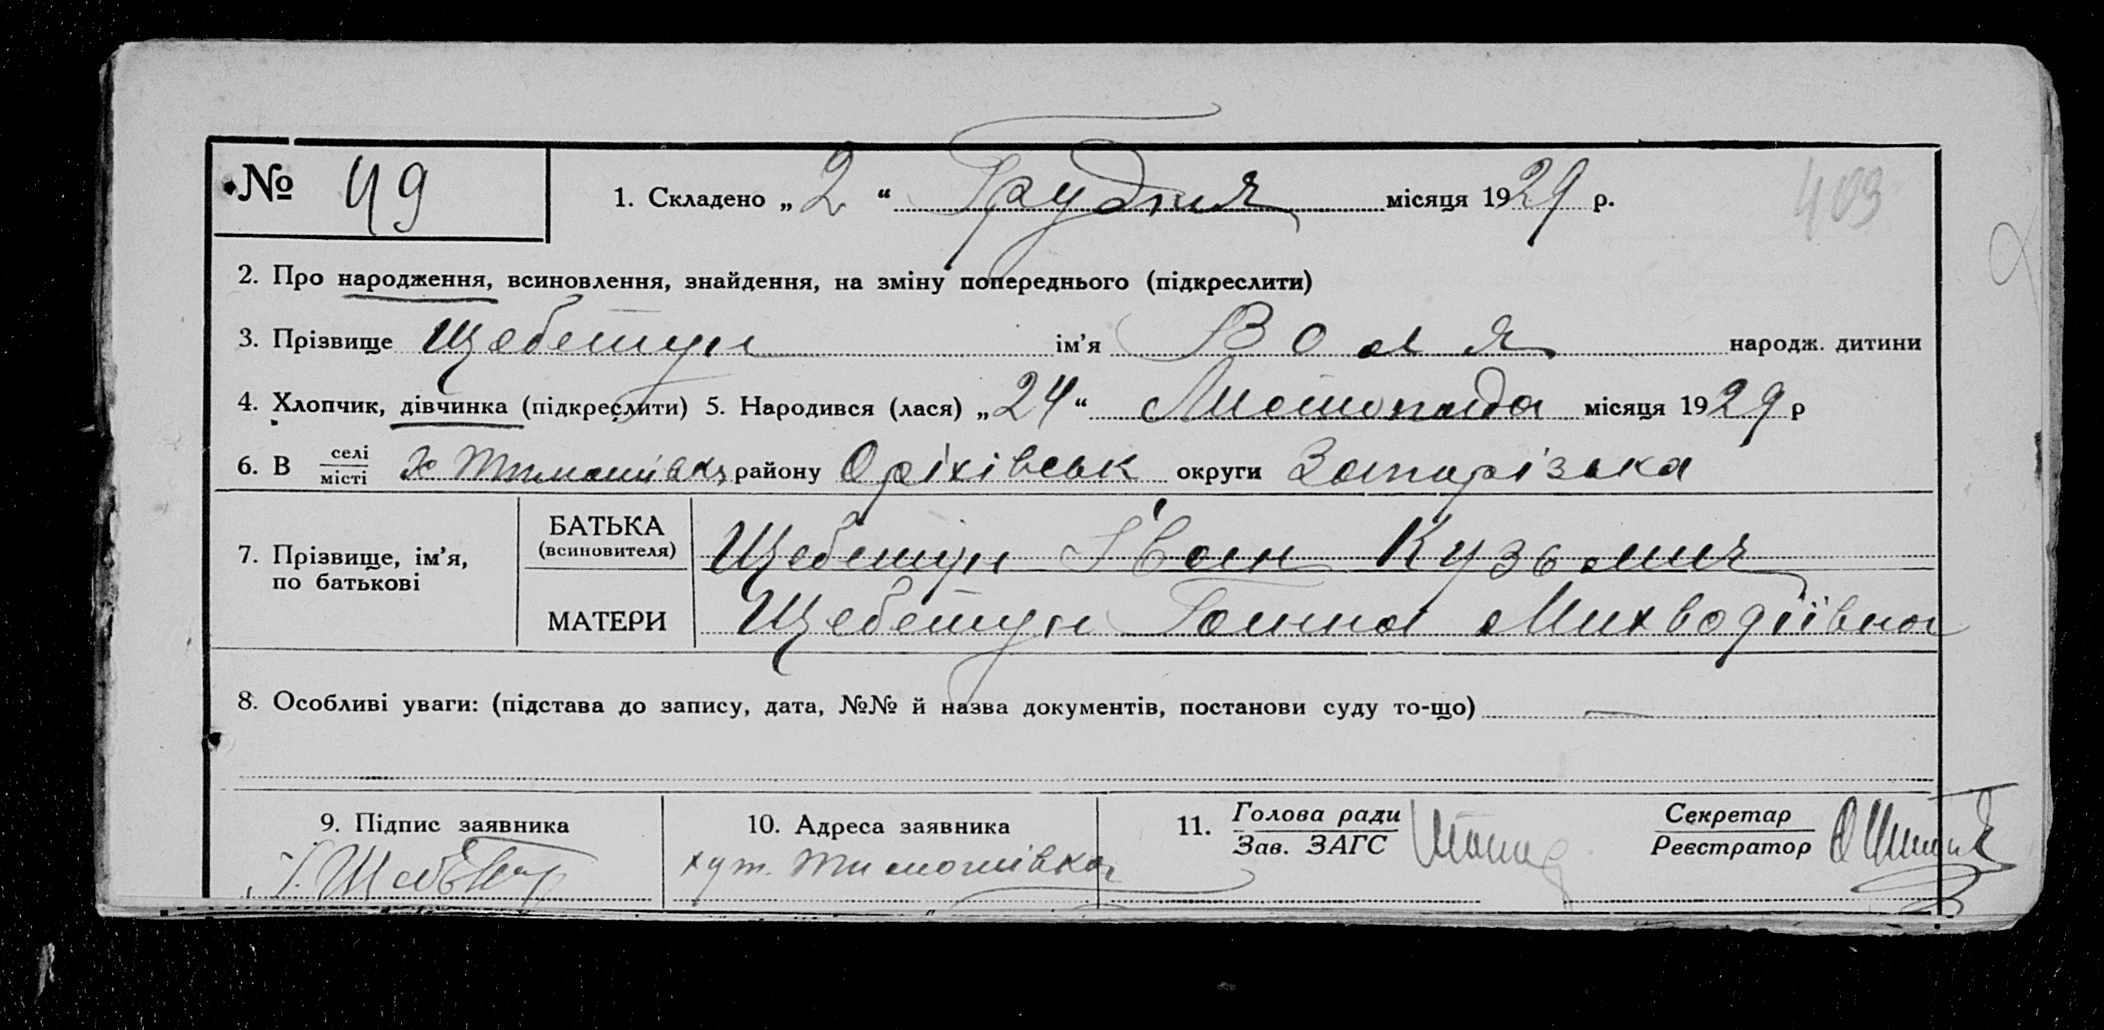 № 49 1. Складено „2“ Грудня місяця 1929 р. 403
2. Про народження, всиновлення, знайдення, на зміну попереднього (підкреслити)
3. Прізвище Щебетун ім'я Воля народж. дитини
4. Хлопчик, дівчинка (підкреслити) 5. Народився (лася) „24“ Листопада місяця 1929 р
6. В селі місті х Тимошівка району Оріхівськ округи Запорізька
7. Прізвище, ім'я, по батькові
БАТЬКА (всиновителя) Щебетун Іван Кузьмич
МАТЕРИ Щебетун Ганна
8. Особливі уваги: (підстава до запису, дата, №№ й назва документів, постанови суду то-що) —
9. Підпис заявника 10. Адреса заявника 11. Голова ради Зав. ЗАГС Секретар Реєстратор
хут. Тимошівка